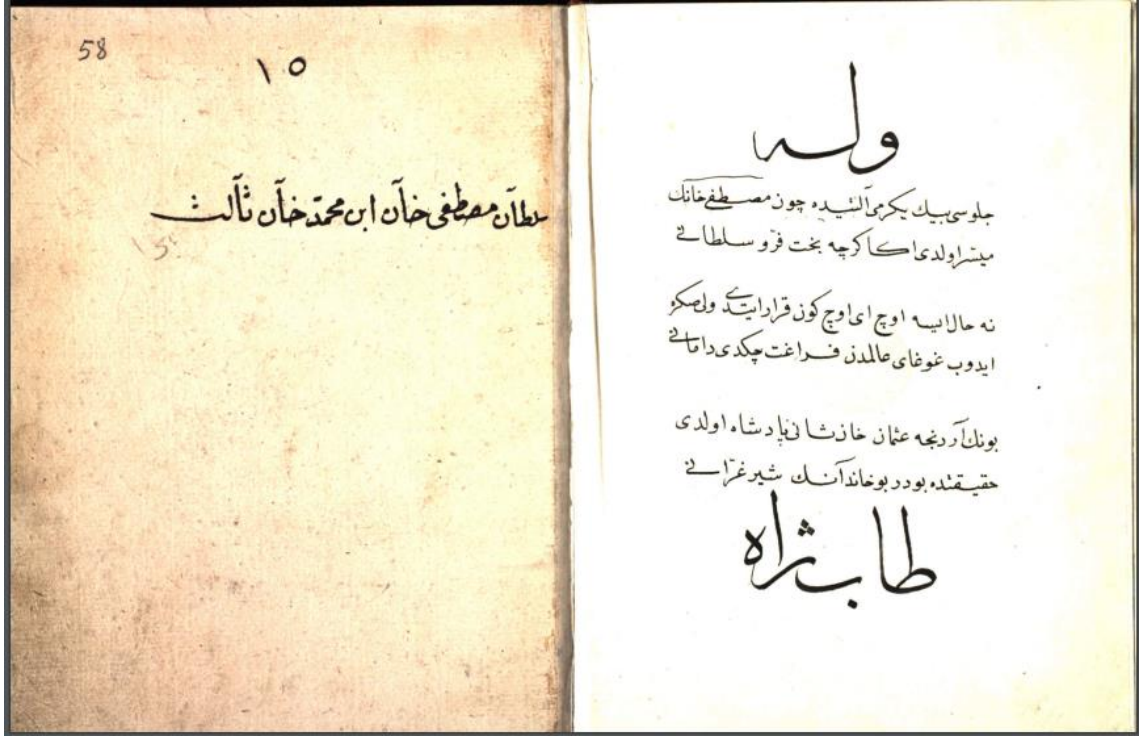 58
١٥
سلطان مصطفى خان ابن محمد خان ثالث
15
وله
جلوسی بیك یکرمی آلتیده چون مصطفی خانك
میسر اولدی اکا کرچه بخت فرو سلطانی
نه حال ایسه اوچ ای اوچ کون قرار ایتدی ولی صکره
ایدوب غوغای عالمدن فراغت چکدی دامانی
بونك آردنجه عثمان خان ثانی پادشاه اولدی
حقیقتده بودر بو خاندانك شیر غرّانی
طاب ثراه